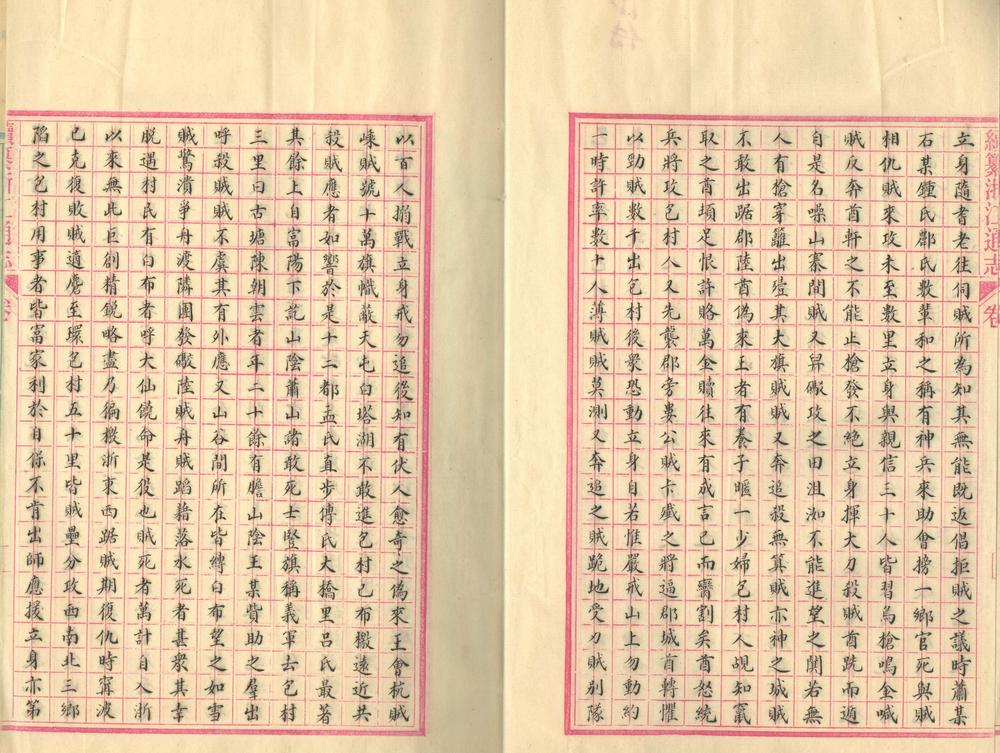 立身隨耆老往伺賊所為知其無能既返倡拒賊之議時蕭某
石某鍾氏酈氏數輩和之稱有神兵來助會搒一鄉官死與賊
相仇賊來攻未至數里立身與親信三十人皆習鳥槍鳴金喊
賊反奔酋軒之不能止槍發不絕立身揮大刀殺賊酋跣而遁
自是名噪山寨間賊又舁礮攻之田沮洳不能進望之闃若無
人有槍穿籬出殪其大旗賊賊又奔追殺無算賊亦神之城賊
不敢出踞郡陸酋偽來王者有養子暱一少婦包村人覘知竄
取之酋頓足恨許賂萬金贖往來有成言已而臠割矣酋怒統
兵將攻包村人又先襲郡旁婁公賊卡殲之將逼郡城酋轉懼
以勁賊數千出包村後衆恐動立身自若惟嚴戒山上勿動約
一時許率數十人薄賊賊莫測又奔追之賊跪地受刀賊別隊
以百人搦戰立身戒勿追後知有伏人愈奇之偽來王會杭賊
嵊賊號十萬旗幟蔽天屯白塔湖不敢進包村已布檄遠近共
殺賊應者如響於是十二都孟氏直步傅氏大橋里呂氏最著
其餘上自富陽下訖山陰蕭山諸敢死士豎旗稱義軍去包村
三里曰古塘陳朝雲者年二十餘有膽山陰王某貲助之羣出
呼殺賊賊不虞其有外應又山谷間所在皆縛白布望之如雪
賊驚潰爭舟渡隣團發礮陸賊舟賊蹈藉落水死者甚衆其幸
脫遇村民有白布者呼大仙饒命是役也賊死者萬計自入浙
以來無此巨創精銳略盡乃徧檄浙東西踞賊期復仇時甯波
已克復敗賊適麕至環包村五十里皆賊壘分攻西南北三鄉
陷之包村用事者皆富家利於自保不肯出師應援立身亦第